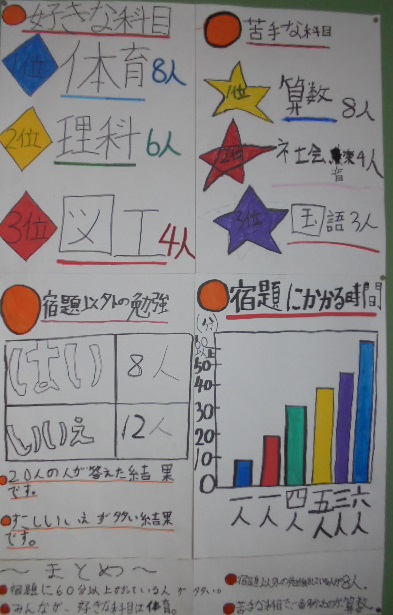 好きな科目
1位 体育 8人
2位 理科 6人
3位 図工 4人
苦手な科目
1位 算数 8人
2位 社会 音楽 4人
3位 国語 3人
宿題以外の勉強
はい 8人
いいえ 12人
20人の人が答えた結果
です。
すこしいいえが多い結果
です。
宿題にかかる時間
(分)
60以上
50
40
30
20
10
0
一人
一人
四人
五人
三人
六人
～まとめ～
宿題に60分以上
みんなが、好きな科目は体育。
8人。
苦手な科目で一番
算数